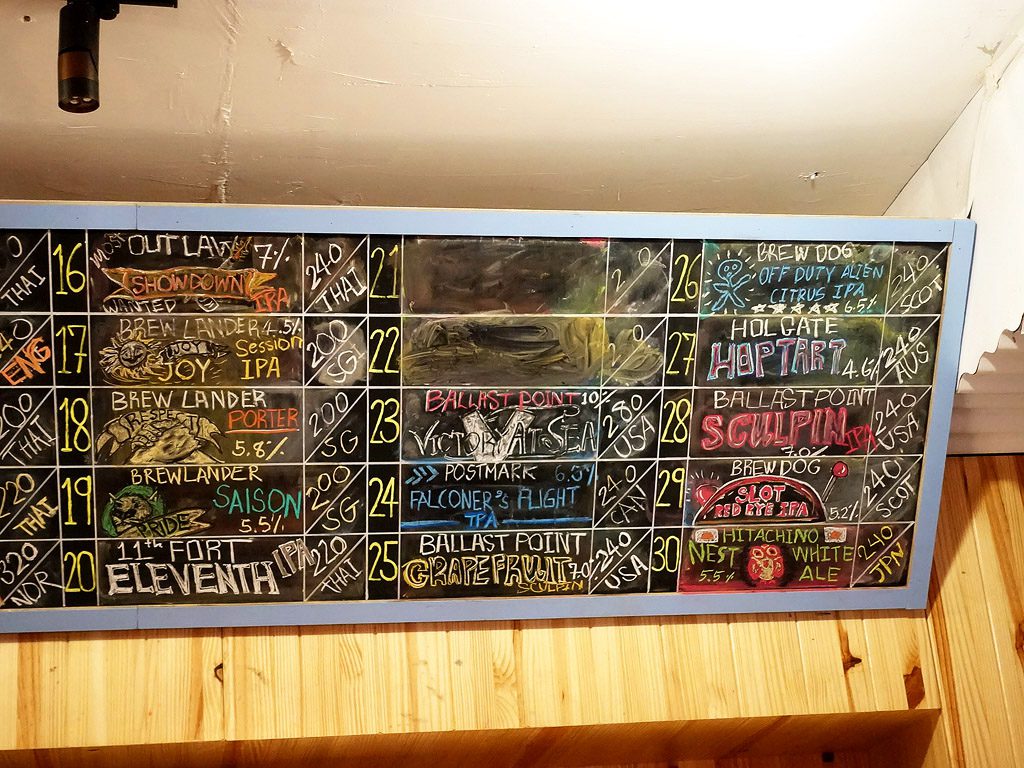 0
THAI
16
MOST
OUTLAW 7%
SHOWDOWN
WANTED IPA
240
THAI
ENG
17
BREW LANDER 4.5%
Session
JOY
JOY IPA
200
SG
200
THAI
18
BREW LANDER
RESPECT PORTER
5.8%
200
SG
220
THAI
19
BREWLANDER
SAISON
PRIDE 5.5%
200
SG
320
NOR
20
11TH FORT
ELEVENTH IPA
220
THAI
21
2 0
22
23
BALLAST POINT 10%
VICTORY AT SEA
280
USA
24
POSTMARK 6.5%
FALCONER'S FLIGHT
IPA
240
CAN
25
BALLAST POINT
GRAPEFRUIT 7.0%
SCULPIN
240
USA
26
BREW DOG
OFF DUTY ALIEN
CITRUS IPA
6.5%
240
SCOT
27
HOLGATE
HOPTART 4.6%
240
AUS
28
BALLAST POINT
SCULPIN IPA
7.0%
240
USA
29
BREWDOG
SLOT
RED RYE IPA 5.2%
240
SCOT
30
HITACHINO
NEST WHITE
5.5% ALE
240
JPN